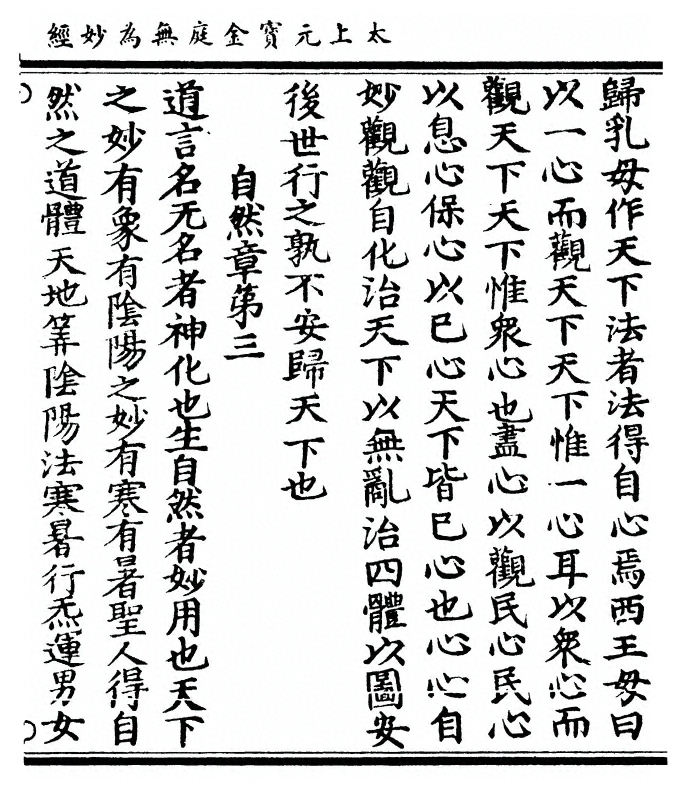 太上元寳金庭無為妙經
歸乳母作天下法者法得自心焉西王母曰
以一心而觀天下天下惟一心耳以衆心而
觀天下天下惟衆心也盡心以觀民心民心
以息心保心以已心天下皆已心也心心自
妙觀觀自化治天下以無亂治四體以圖安
後世行之孰不安歸天下也
自然章第三
道言名无名者神化也生自然者妙用也天下
之妙有象有陰陽之妙有寒有暑聖人得自
然之道體天地筭陰陽法寒暑行炁運男女